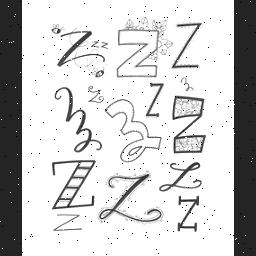 Z z z Z Z
Z z Z z Z
Z Z Z
Z Z